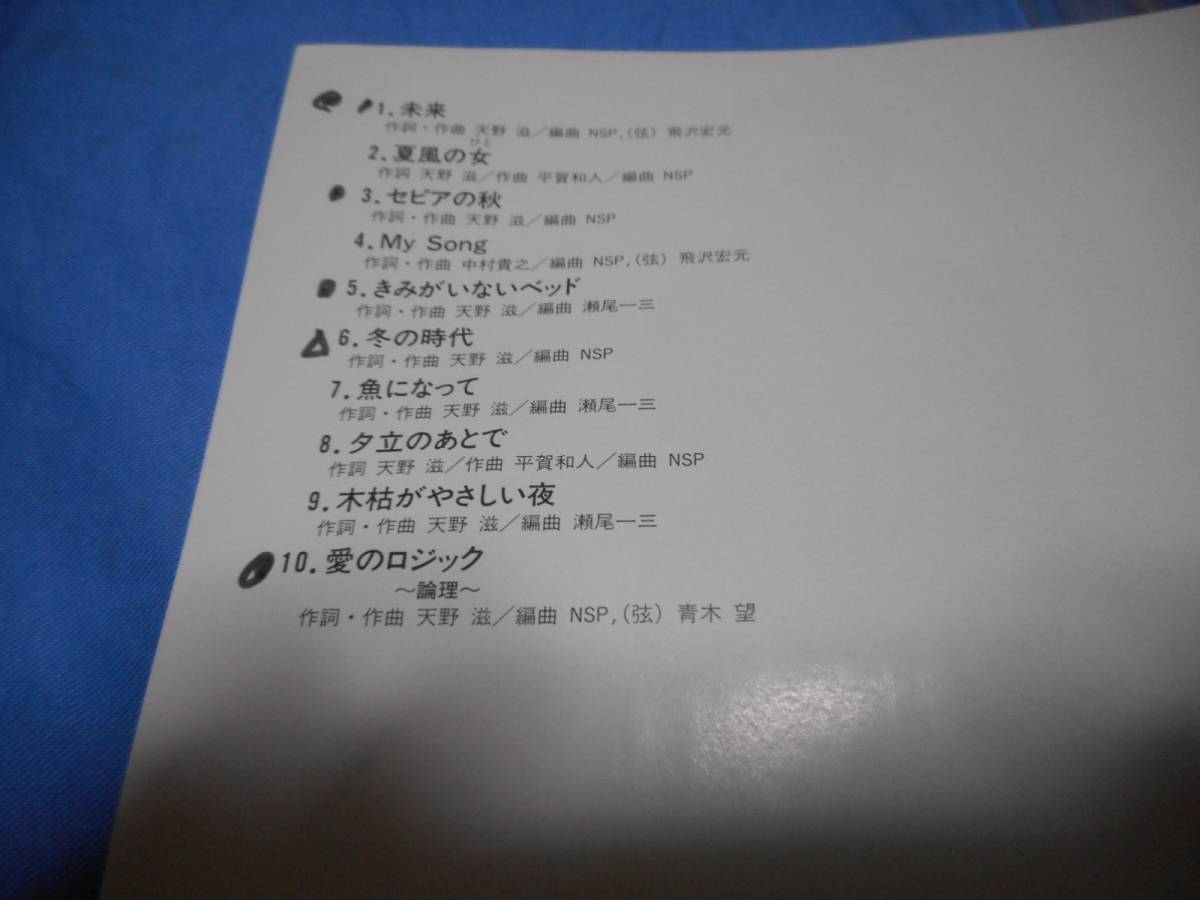 1.未来
作詞・作曲 天野 滋／編曲 NSP,(弦) 飛沢宏元
ひと
2.夏風の女
作詞 天野 滋／作曲 平賀和人／編曲 NSP
3.セピアの秋
作詞・作曲 天野 滋／編曲 NSP
4.My Song
作詞・作曲 中村貴之／編曲 NSP,(弦) 飛沢宏元
5.きみがいないベッド
作詞・作曲 天野 滋／編曲 瀬尾一三
6.冬の時代
作詞・作曲 天野 滋／編曲 NSP
7.魚になって
作詞・作曲 天野 滋／編曲 瀬尾一三
8.夕立のあとで
作詞 天野 滋／作曲 平賀和人／編曲 NSP
9.木枯がやさしい夜
作詞・作曲 天野 滋／編曲 瀬尾一三
10.愛のロジック
～論理～
作詞・作曲 天野 滋／編曲 NSP,(弦) 青木 望